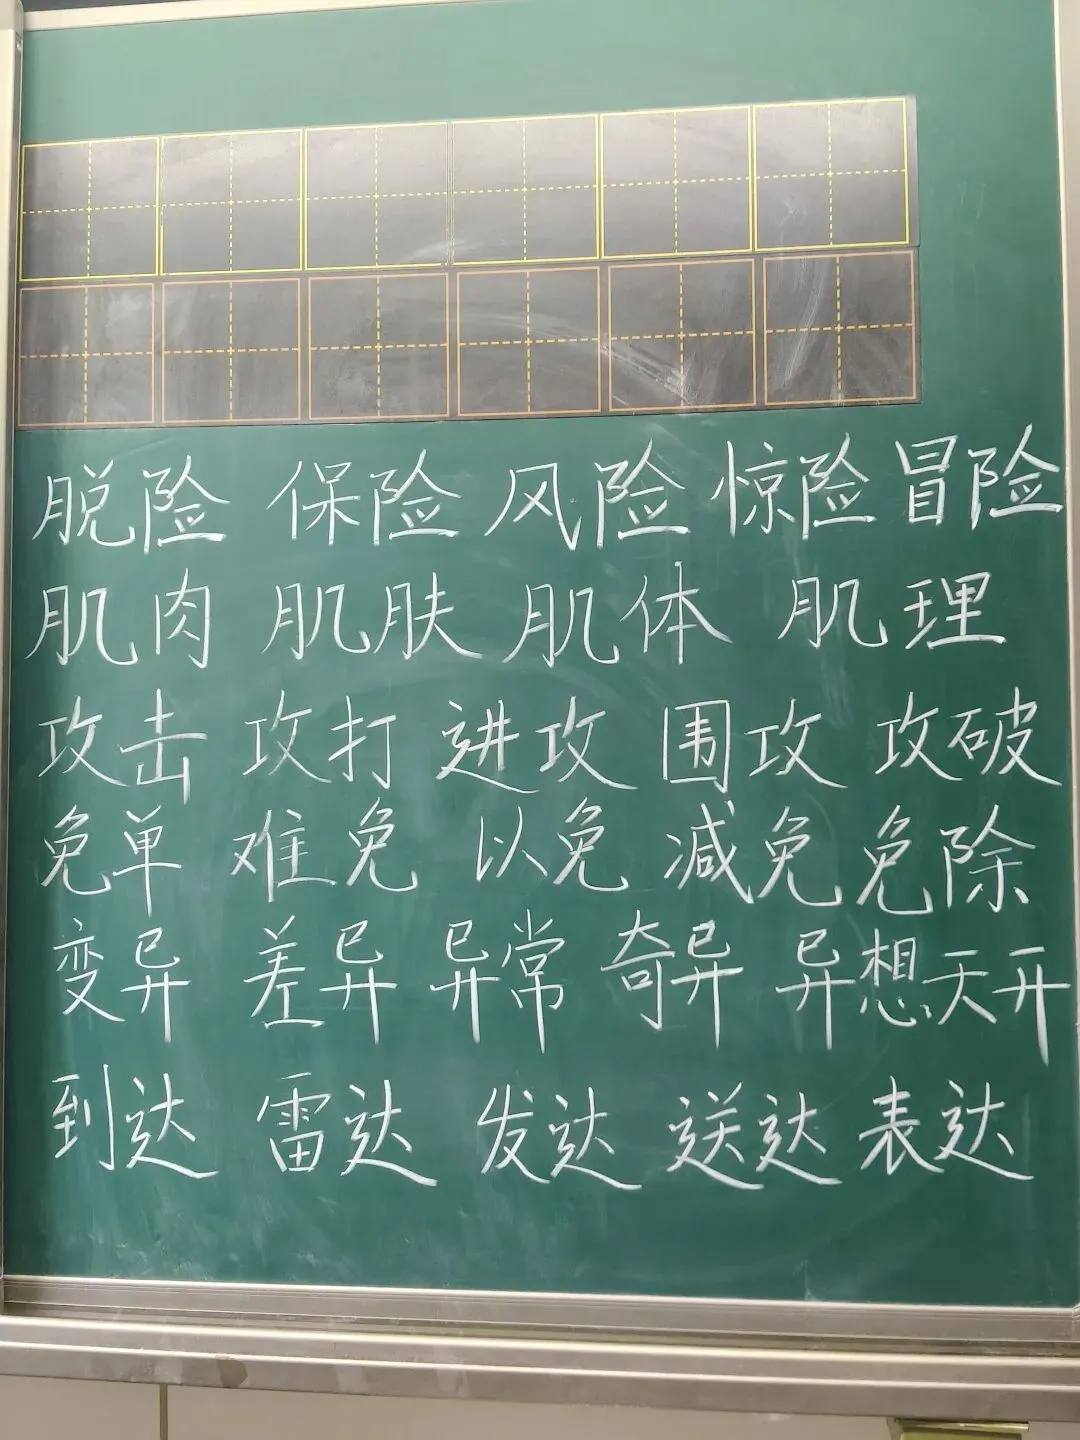 脱险 保险 风险 惊险 冒险
肌肉 肌肤 肌体 肌理
攻击 攻打 进攻 围攻 攻破
免单 难免 以免 减免 免除
变异 差异 异常 奇异 异想天开
到达 雷达 发达 送达 表达